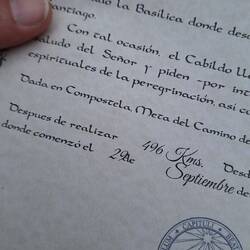 la Basílica donde des
Santiago.
Con tal ocasión, el Cabildo
saludo del Señor y piden -por
espirituales de la peregrinación, así
Dada en Compostela, Meta del Camino de
Despues de realizar 496 Kms. Desd
donde comenzó el 29 de Septiembre de
CAPITULUM